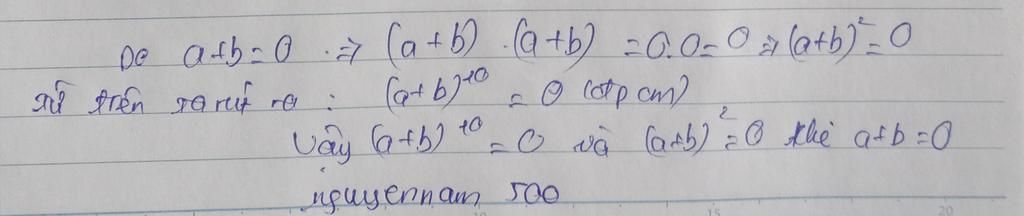 Do a+b=0 ⇒ (a+b).(a+b) =0.0=0 ⇒ (a+b)²=0
từ trên ta rút ra : (a+b)¹⁰ = 0 (đpcm)
Vậy (a+b)¹⁰ = 0 và (a+b)²=0 khi a+b=0
nguyennam 500
15 20